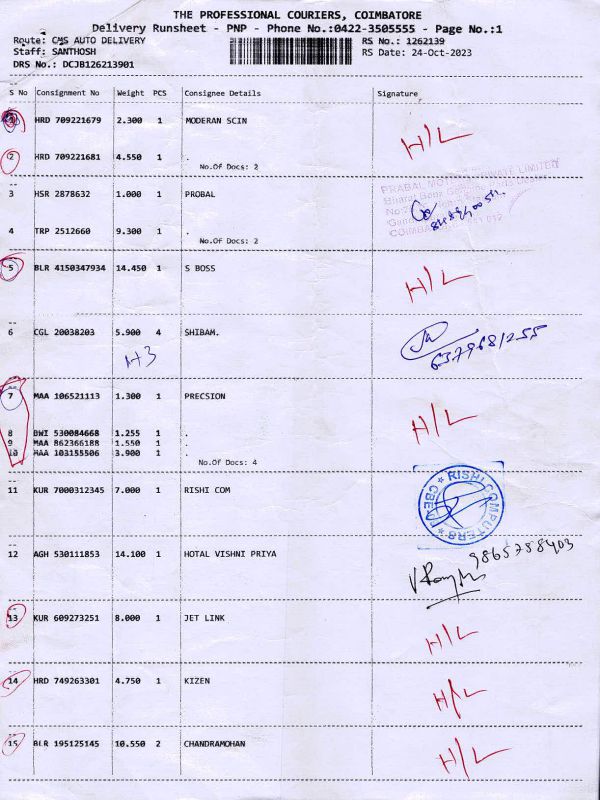 THE PROFESSIONAL COURIERS, COIMBATORE
Delivery Runsheet - PNP - Phone No.:0422-3505555 - Page No.:1
Route: CMS AUTO DELIVERY RS No.: 1262139
Staff: SANTHOSH RS Date: 24-Oct-2023
DRS No.: DCJB126213901
S No Consignment No Weight PCS Consignee Details Signature
1 HRD 709221679 2.300 1 MODERAN SCIN
H/L
2 HRD 709221681 4.550 1 .
No.Of Docs: 2
3 HSR 2878632 1.000 1 PROBAL
PRABAL LIMITED
4 TRP 2512660 9.300 1 .
No.Of Docs: 2
5 BLR 4150347934 14.450 1 S BOSS
H/L
6 CGL 20038203 5.900 4 SHIBAM.
6379681255
1+3
7 MAA 106521113 1.300 1 PRECSION
H/L
8 BWI 530084668 1.255 1 .
9 MAA 862366188 1.550 1 .
10 MAA 103155506 3.900 1 .
No.Of Docs: 4
11 KUR 7000312345 7.000 1 RISHI COM
RISHI COMPUTERS
12 AGH 530111853 14.100 1 HOTAL VISHNI PRIYA
9865788403
13 KUR 609273251 8.000 1 JET LINK
H/L
14 HRD 749263301 4.750 1 KIZEN
H/L
15 BLR 195125145 10.550 2 CHANDRAMOHAN
H/L